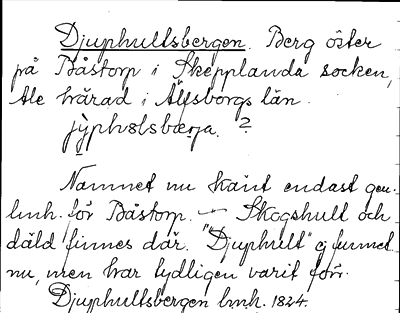 Djuphultsbergen. Berg öster
på Båstorp i Skepplanda socken,
Ale härad i Älfsborgs län.
Namnet nu känt endast gen.
lmh. för Båstorp. — Skogshult och
däld finnes där. "Djuphult" ej funnet
nu, men har tydligen varit förr.
Djuphultsbergen lmh. 1824.